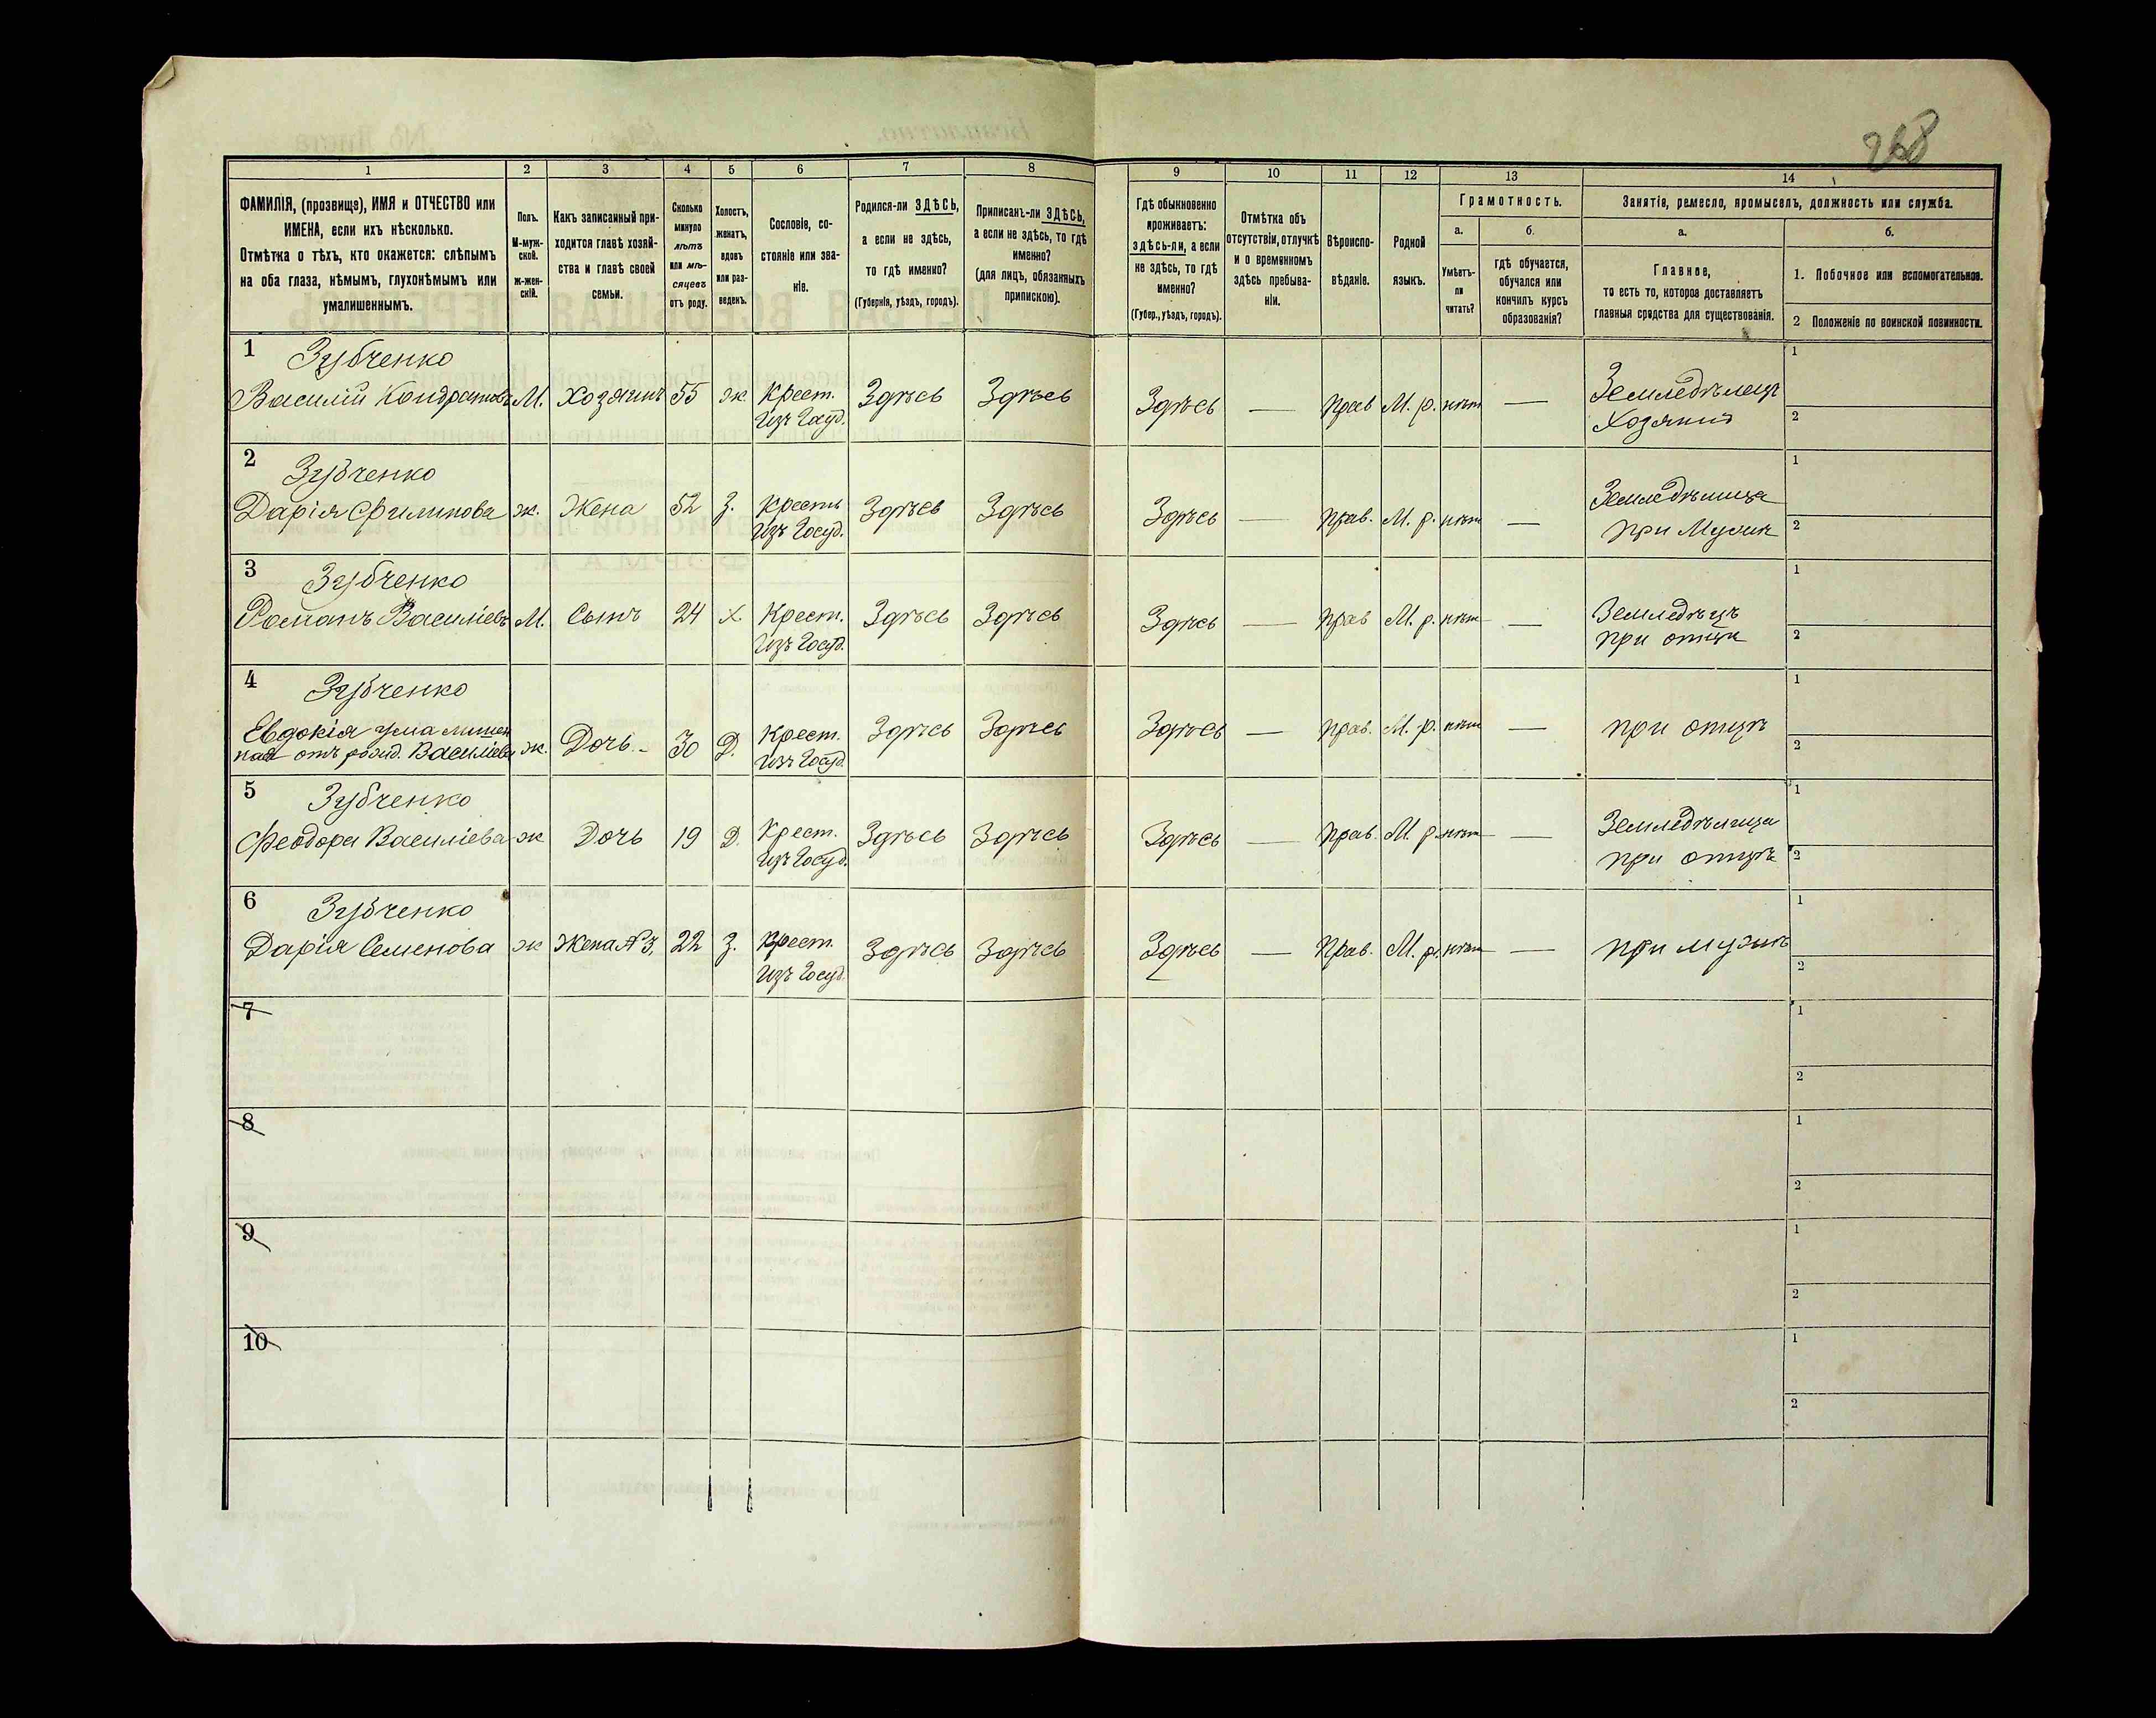 268
1 2 3 4 5 6 7 8 9 10 11 12 13 14
ФАМИЛІЯ, (прозвище), ИМЯ и ОТЧЕСТВО или
ИМЕНА, если ихъ нѣсколько.
Отмѣтка о тѣхъ, кто окажется: слѣпымъ
на оба глаза, нѣмымъ, глухонѣмымъ или
умалишеннымъ.
Полъ.
М-муж-
ской.
ж-жен-
скій.
Какъ записанный при-
ходится главѣ хозяй-
ства и главѣ своей
семьи.
Сколько
минуло
лѣтъ
или мѣ-
сяцевъ
отъ роду.
Холостъ,
женатъ,
вдовъ
или раз-
веденъ.
Сословіе, со-
стояніе или зва-
ніе.
Родился-ли ЗДѢСЬ,
а если не здѣсь,
то гдѣ именно?
(Губернія, уѣздъ, городъ).
Приписанъ-ли ЗДѢСЬ,
а если не здѣсь, то гдѣ
именно?
(для лицъ, обязанныхъ
припискою).
Гдѣ обыкновенно
проживаетъ:
здѣсь-ли, а если
не здѣсь, то гдѣ
именно?
(Губер., уѣздъ, городъ).
Отмѣтка объ
отсутствіи, отлучкѣ
и о временномъ
здѣсь пребыва-
ніи.
Вѣроиспо-
вѣданіе.
Родной
языкъ.
Грамотность.
а.
Умѣетъ-
ли
читать?
б.
гдѣ обучается,
обучался или
кончилъ курсъ
образованія?
Занятіе, ремесло, промыселъ, должность или служба.
а.
Главное,
то есть то, которое доставляетъ
главныя средства для существованія.
б.
1. Побочное или вспомогательное.
2 Положеніе по воинской повинности.
1 Зубченко
Василій Кондратовъ М. Хозяинъ 55 ж. Крест. Здѣсь Здѣсь Здѣсь — Прав М. р. нѣт — Земледѣлец 1
Изъ Госуд. Хозяинъ 2
2 Зубченко
Дарія Филипова ж. Жена 52 З. Крестъ Здѣсь Здѣсь Здѣсь — Прав. М. р. нѣт — Земледѣлица 1
Изъ Госуд. при Мужик 2
3 Зубченко
Романъ Василіевъ М. Сынъ 24 Х Крест. Здѣсь Здѣсь Здѣсь — Прав М. р. нѣт — Земледѣцъ 1
Изъ Госуд. при отцѣ 2
4 Зубченко
Евдокія умалишен Крест. Здѣсь Здѣсь Здѣсь — Прав. М. р. нѣт — при отцѣ 1
ная отъ рожд. Василіева ж. Дочь - 30 Д. Изъ Госуд. 2
5 Зубченко
Феодора Василіева ж Дочь 19 Д. Крест. Здѣсь Здѣсь Здѣсь — Прав. М. р. нѣт — Земледѣлица 1
Изъ Госуд. при отцѣ 2
6 Зубченко
Дарія Семенова ж Жена № 3, 22 З. Крест. Здѣсь Здѣсь Здѣсь — Прав. М. р. нѣт — при мужѣ 1
Изъ Госуд. 2
7 1
2
8 1
2
9 1
2
10 1
2